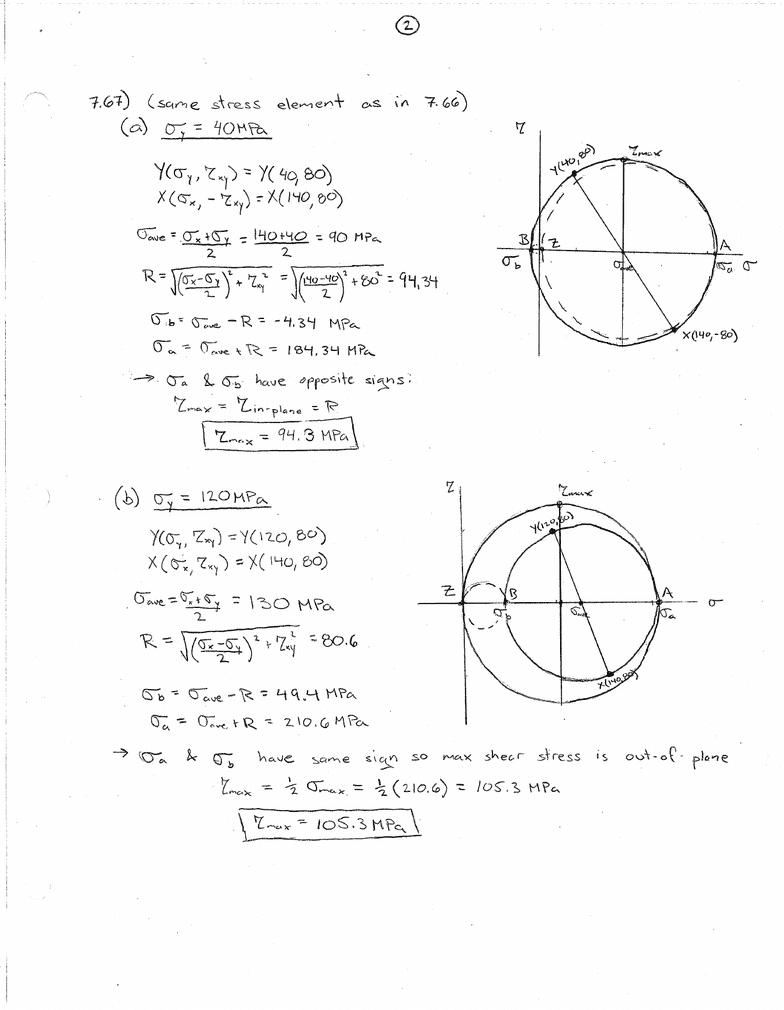 2
7.67) (same stress element as in 7.66)
(a) σy = 40MPa
Y(σy, τxy) = Y(40,80)
X(σx, -τxy) = X(140,80)
σave = (σx+σy)/2 = (140+40)/2 = 90 MPa
R = √(((σx-σy)/2)² + τxy²) = √(((140-40)/2)² + 80²) = 94.34
σb = σave - R = -4.34 MPa
σa = σave + R = 184.34 MPa
→ σa & σb have opposite signs:
τmax = τin-plane = R
τmax = 94.3 MPa
τ
Y(40,80)
τmax
B
Z
A
σb
σave
σa
σ
X(140,-80)
(b) σy = 120MPa
Y(σy, τxy) = Y(120,80)
X(σx, τxy) = X(140,80)
σave = (σx+σy)/2 = 130 MPa
R = √(((σx-σy)/2)² + τxy²) = 80.6
σb = σave - R = 49.4 MPa
σa = σave + R = 210.6 MPa
τ
τmax
Y(120,80)
Z
B
A
σ
σb
σave
σa
X(140,80)
→ σa & σb have same sign so max shear stress is out-of-plane
τmax = ½ σmax = ½(210.6) = 105.3 MPa
τmax = 105.3 MPa